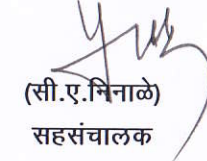 (सी.ए.निनाळे)
सहसंचालक